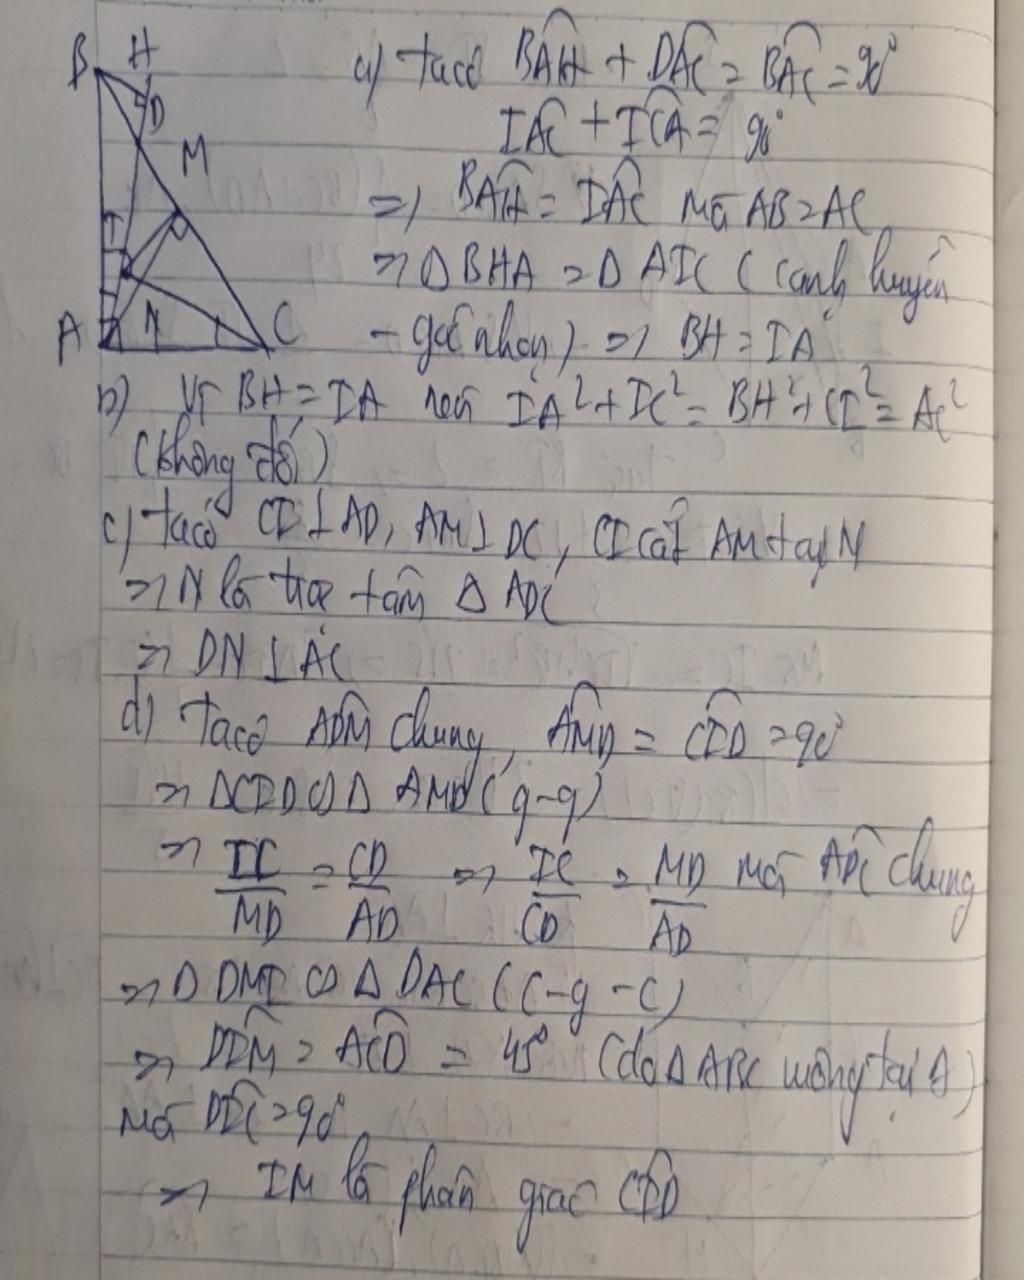 B H
D
M
I
A N C
a) ta có BAH + DAC = BAC = 90°
IAC + ICA = 90°
=> BAH = IAC mà AB = AC
=> Δ BHA = Δ AIC (cạnh huyền
- góc nhọn) => BH = IA
b) Vì BH = IA nên IA² + IC² = BH² + CI² = AC²
(không đổi)
c) ta có CI ⊥ AD, AM ⊥ DC, CI cắt AM tại N
=> N là trực tâm Δ ADC
=> DN ⊥ AC
d) Ta có ADM chung, AMD = CID = 90°
=> ΔCID ∽ Δ AMD (g-g)
=> IC/MD = CD/AD => IC/CD = MD/AD mà ADC chung
=> Δ DMI ∽ Δ DAC (c-g-c)
=> DIM = ACD = 45° (do Δ ABC vuông tại A)
Mà DIC = 90°
=> IM là phân giác CID